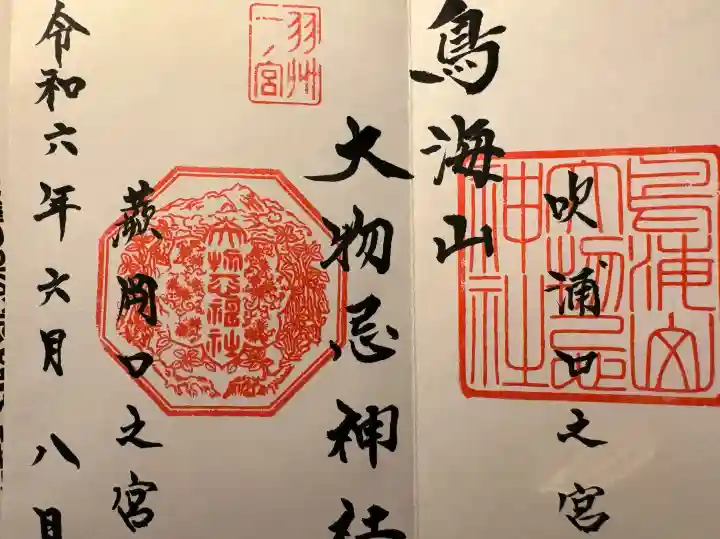 吹浦口之宮
鳥海山
大物忌神社
鳥海山大物忌神社
羽州一ノ宮
蕨岡口之宮
令和六年六月八日